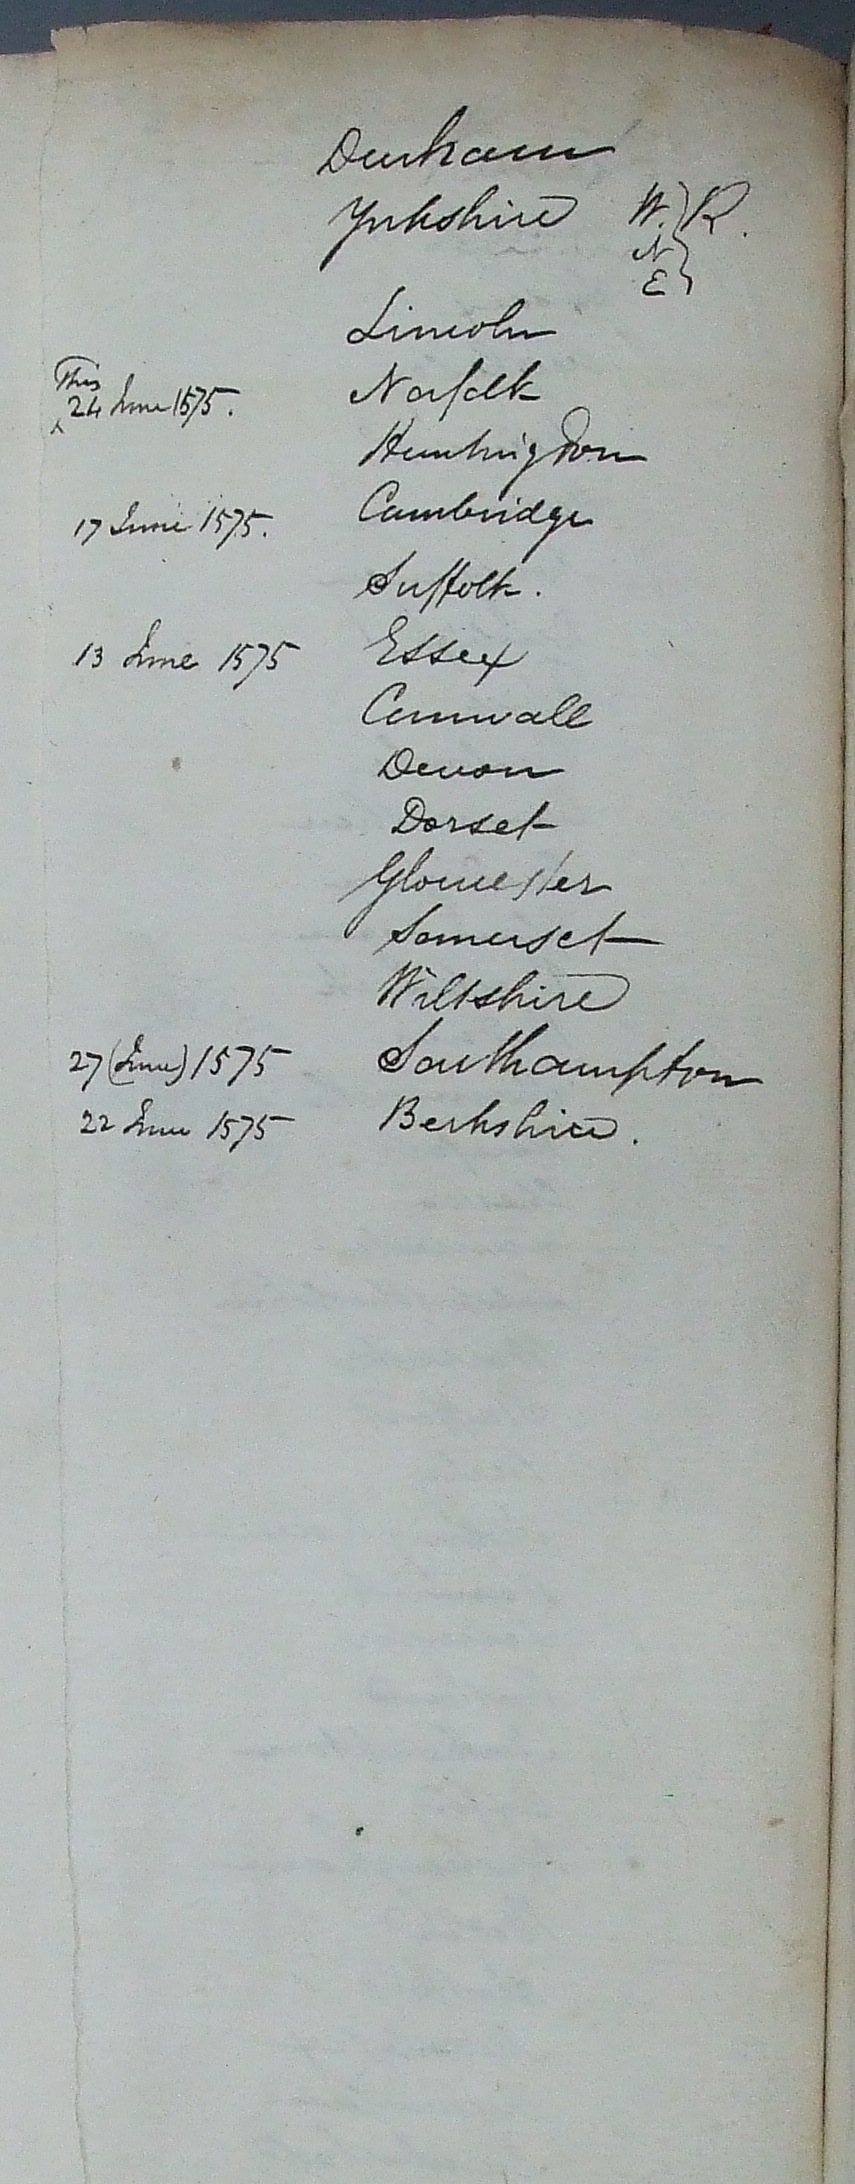 Durham
Yrkshire W. } R.
N
E
Lincoln
This
24 June 1575. Norfolk
Huntingdon
17 June 1575. Cambridge
Suffolk.
13 June 1575 Essex
Cornwall
Devon
Dorset
Gloucester
Somerset
Wiltshire
27 (June) 1575 Southampton
22 June 1575 Berkshire.